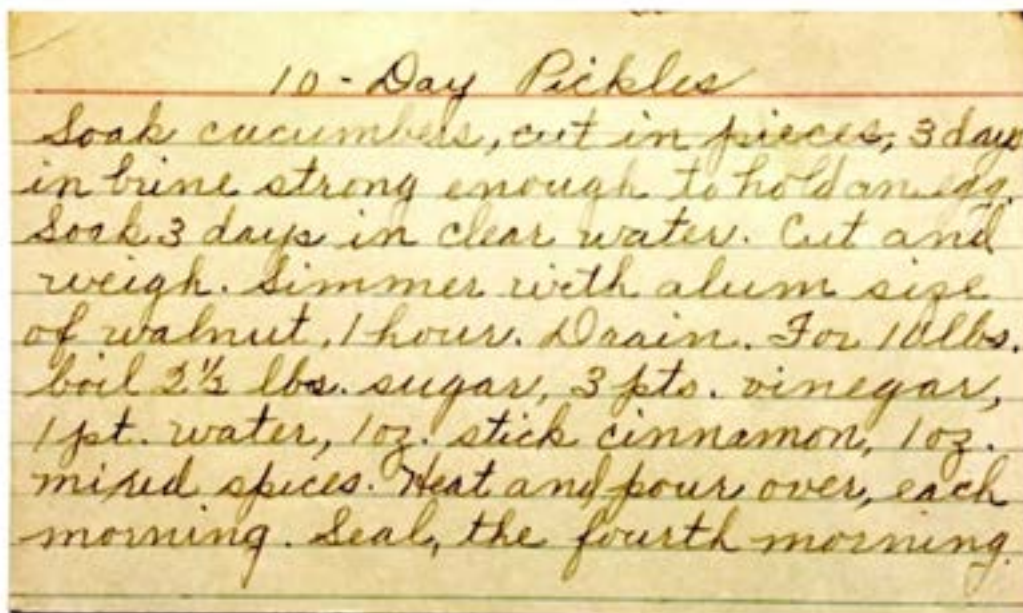 10-Day Pickles
Soak cucumbers, cut in pieces, 3 days
in brine strong enough to hold an egg.
Soak 3 days in clear water. Cut and
weigh. Simmer with alum size
of walnut, 1 hour. Drain. For 10 lbs.
boil 2½ lbs. sugar, 3 pts. vinegar,
1 pt. water, 1 oz. stick cinnamon, 1 oz.
mixed spices. Heat and pour over, each
morning. Seal, the fourth morning.